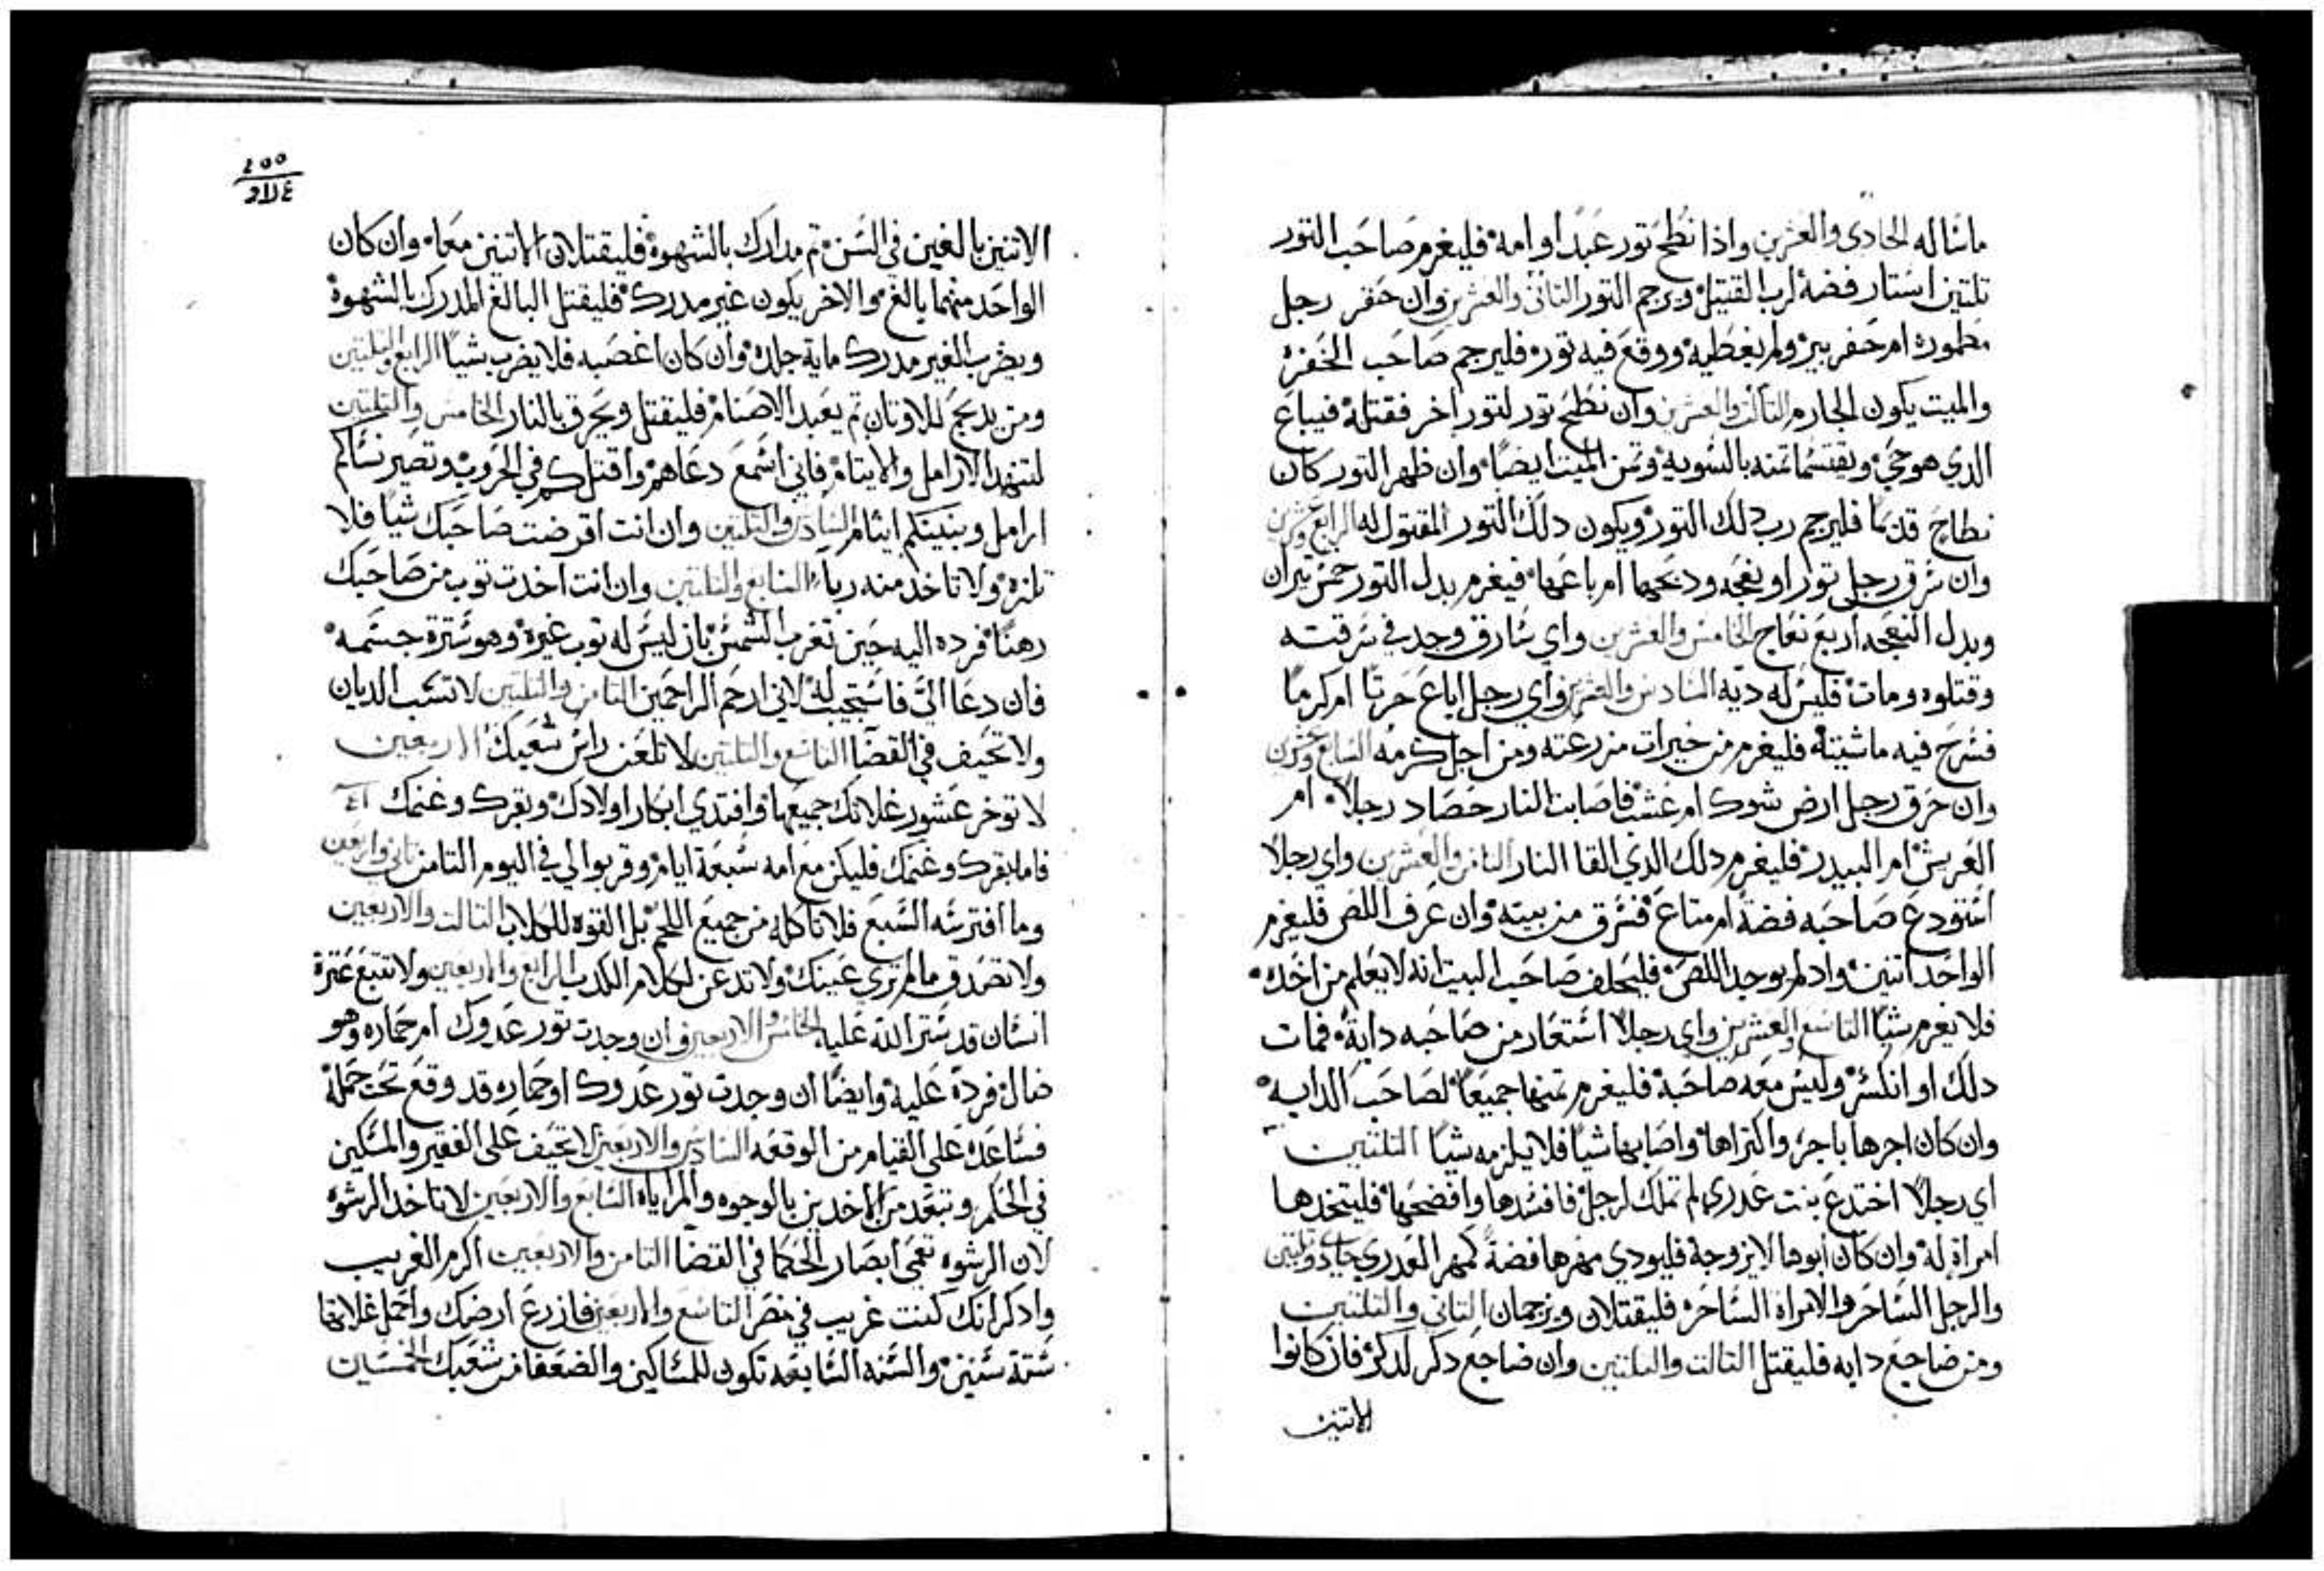 ماشاله الحادى والعشرين واذا نطح تور عبدا او امه فليغرم صاحب التور
تلتين استار فضه لرب القتيل ويرجم التور التاني والعشرين وان حفر رجل
مطموره ام حفر بير ولم يغطيه ووقع فيه تور فليرجم صاحب الحفره
والميت يكون لجاره التالت والعشرين وان نطح تور لتور اخر فقتله فيباع
الدي هو حي ويقتسما تمنه بالسويه وتمن الميت ايضا وان ظهر التور كان
نطاح قديما فليرجم رب دلك التور ويكون دلك التور المقتول له الرابع وعشرين
وان سرق رجل تور او نعجه ودبحهما ام باعهما فيغرم بدل التور خمس تيران
وبدل النعجه اربع نعاج الخامس والعشرين واي سارق وجد في سرقته
وقتلوه ومات فليس له ديه السادس والعشرين واي رجل اباع حرتا ام كرما
فسرح فيه ماشيته فليغرم من خيرات مزرعته ومن اجل كرمه السابع وعشرين
وان حرق رجل ارض شوك ام عشب فاصابت النار حصاد رجلا ام
العريش ام البيدر فليغرم دلك الدي القا النار التامن والعشرين واي رجلا
استودع صاحبه فضه ام متاع فسرق من بيته وان عرف اللص فليغرم
الواحد اتنين واد لم يوجد اللص فليحلف صاحب البيت انه لا يعلم من اخده
فلا يغرم شيا التاسع والعشرين واي رجلا استعار من صاحبه دابة فمات
دلك او انكسر وليس معه صاحبه فليغرم تمنها جميعا لصاحب الدابه
وان كان اجرها باجر واكتراها واصابها شيا فلا يلزمه شيا التلتين
اي رجلا اختدع بنت عدري لم تملك لرجل فافسدها وافضحها فليتخدها
امراة له وان كان ابوها لا يزوجه فليودي مهرها فضة كمهر العدري حادي وتلتين
والرجل الساحر والامراه الساحره فليقتلان ويرجمان التاني والتلتين
ومن ضاجع دابه فليقتل التالت والتلتين وان ضاجع دكر لدكر فان كانوا
الاتنين
٤٥٥
الاتنين بالغين في السن تم مدارك بالشهوة فليقتلان الاتنين معا وان كان
الواحد منهما بالغ والاخر يكون غير مدرك فليقتل البالغ المدرك بالشهوة
ويضرب الغير مدرك ماية جلده وان كان اغصبه فلا يضرب بشيا الرابع والتلتين
ومن يدبح للاوتان تم يعبد الاصنام فليقتل ويحرق بالنار الخامس والتلتين
الارامل والايتام فاني اسمع دعاهم واقتلكم في الحروب وتصير نساكم
ارامل وبنينكم ايتام السادس والتلتين وان انت اقرضت صاحبك شيا فلا
تلزه ولا تاخد منه ربا السابع والتلتين وان انت اخدت توب من صاحبك
رهنا فرده اليه حين تغرب الشمس بان ليس له توب غيره وهو سترة جسمه
فان دعا الي فاستجيب له لاني ارحم الراحمين التامن والتلتين لا تسب الديان
ولا تحيف في القضا التاسع والتلتين لا تلعن رايس شعبك الاربعين
لا توخر عشور غلاتك جميعها وافتدي ابكار اولادك وبقرك وغنمك
فاما بقرك وغنمك فليكن مع امه سبعة ايام وقربوا لي في اليوم التامن تاني واربعين
وما افترسه السبع فلا تاكله من جميع اللحم بل القوه للكلاب التالت والاربعين
ولا تصدق ما لم تري عينك ولا تدعن لكلام الكدب الرابع والاربعين ولا تتبع عترة
انسان قد ستر الله عليه الخامس والاربعين وان وجدت تور عدوك ام حماره وهو
ضال فرده عليه وايضا ان وجدت تور عدوك او حماره قد وقع تحت حمله
فساعده على القيام من الوقعه السادس والاربعين لا تحيف على الفقير والمسكين
في الحكم وتبعد من الاخدين بالوجوه والمراياه السابع والاربعين لا تاخد الرشوه
لان الرشوه تعمي ابصار الحكما في القضا التامن والاربعين اكرم الغريب
وادكر انك كنت غريب في مصر التاسع والاربعين فازرع ارضك واحمل غلاتها
ستة سنين والسنه السابعه تكون للمساكين والضعفا من شعبك الخمسين